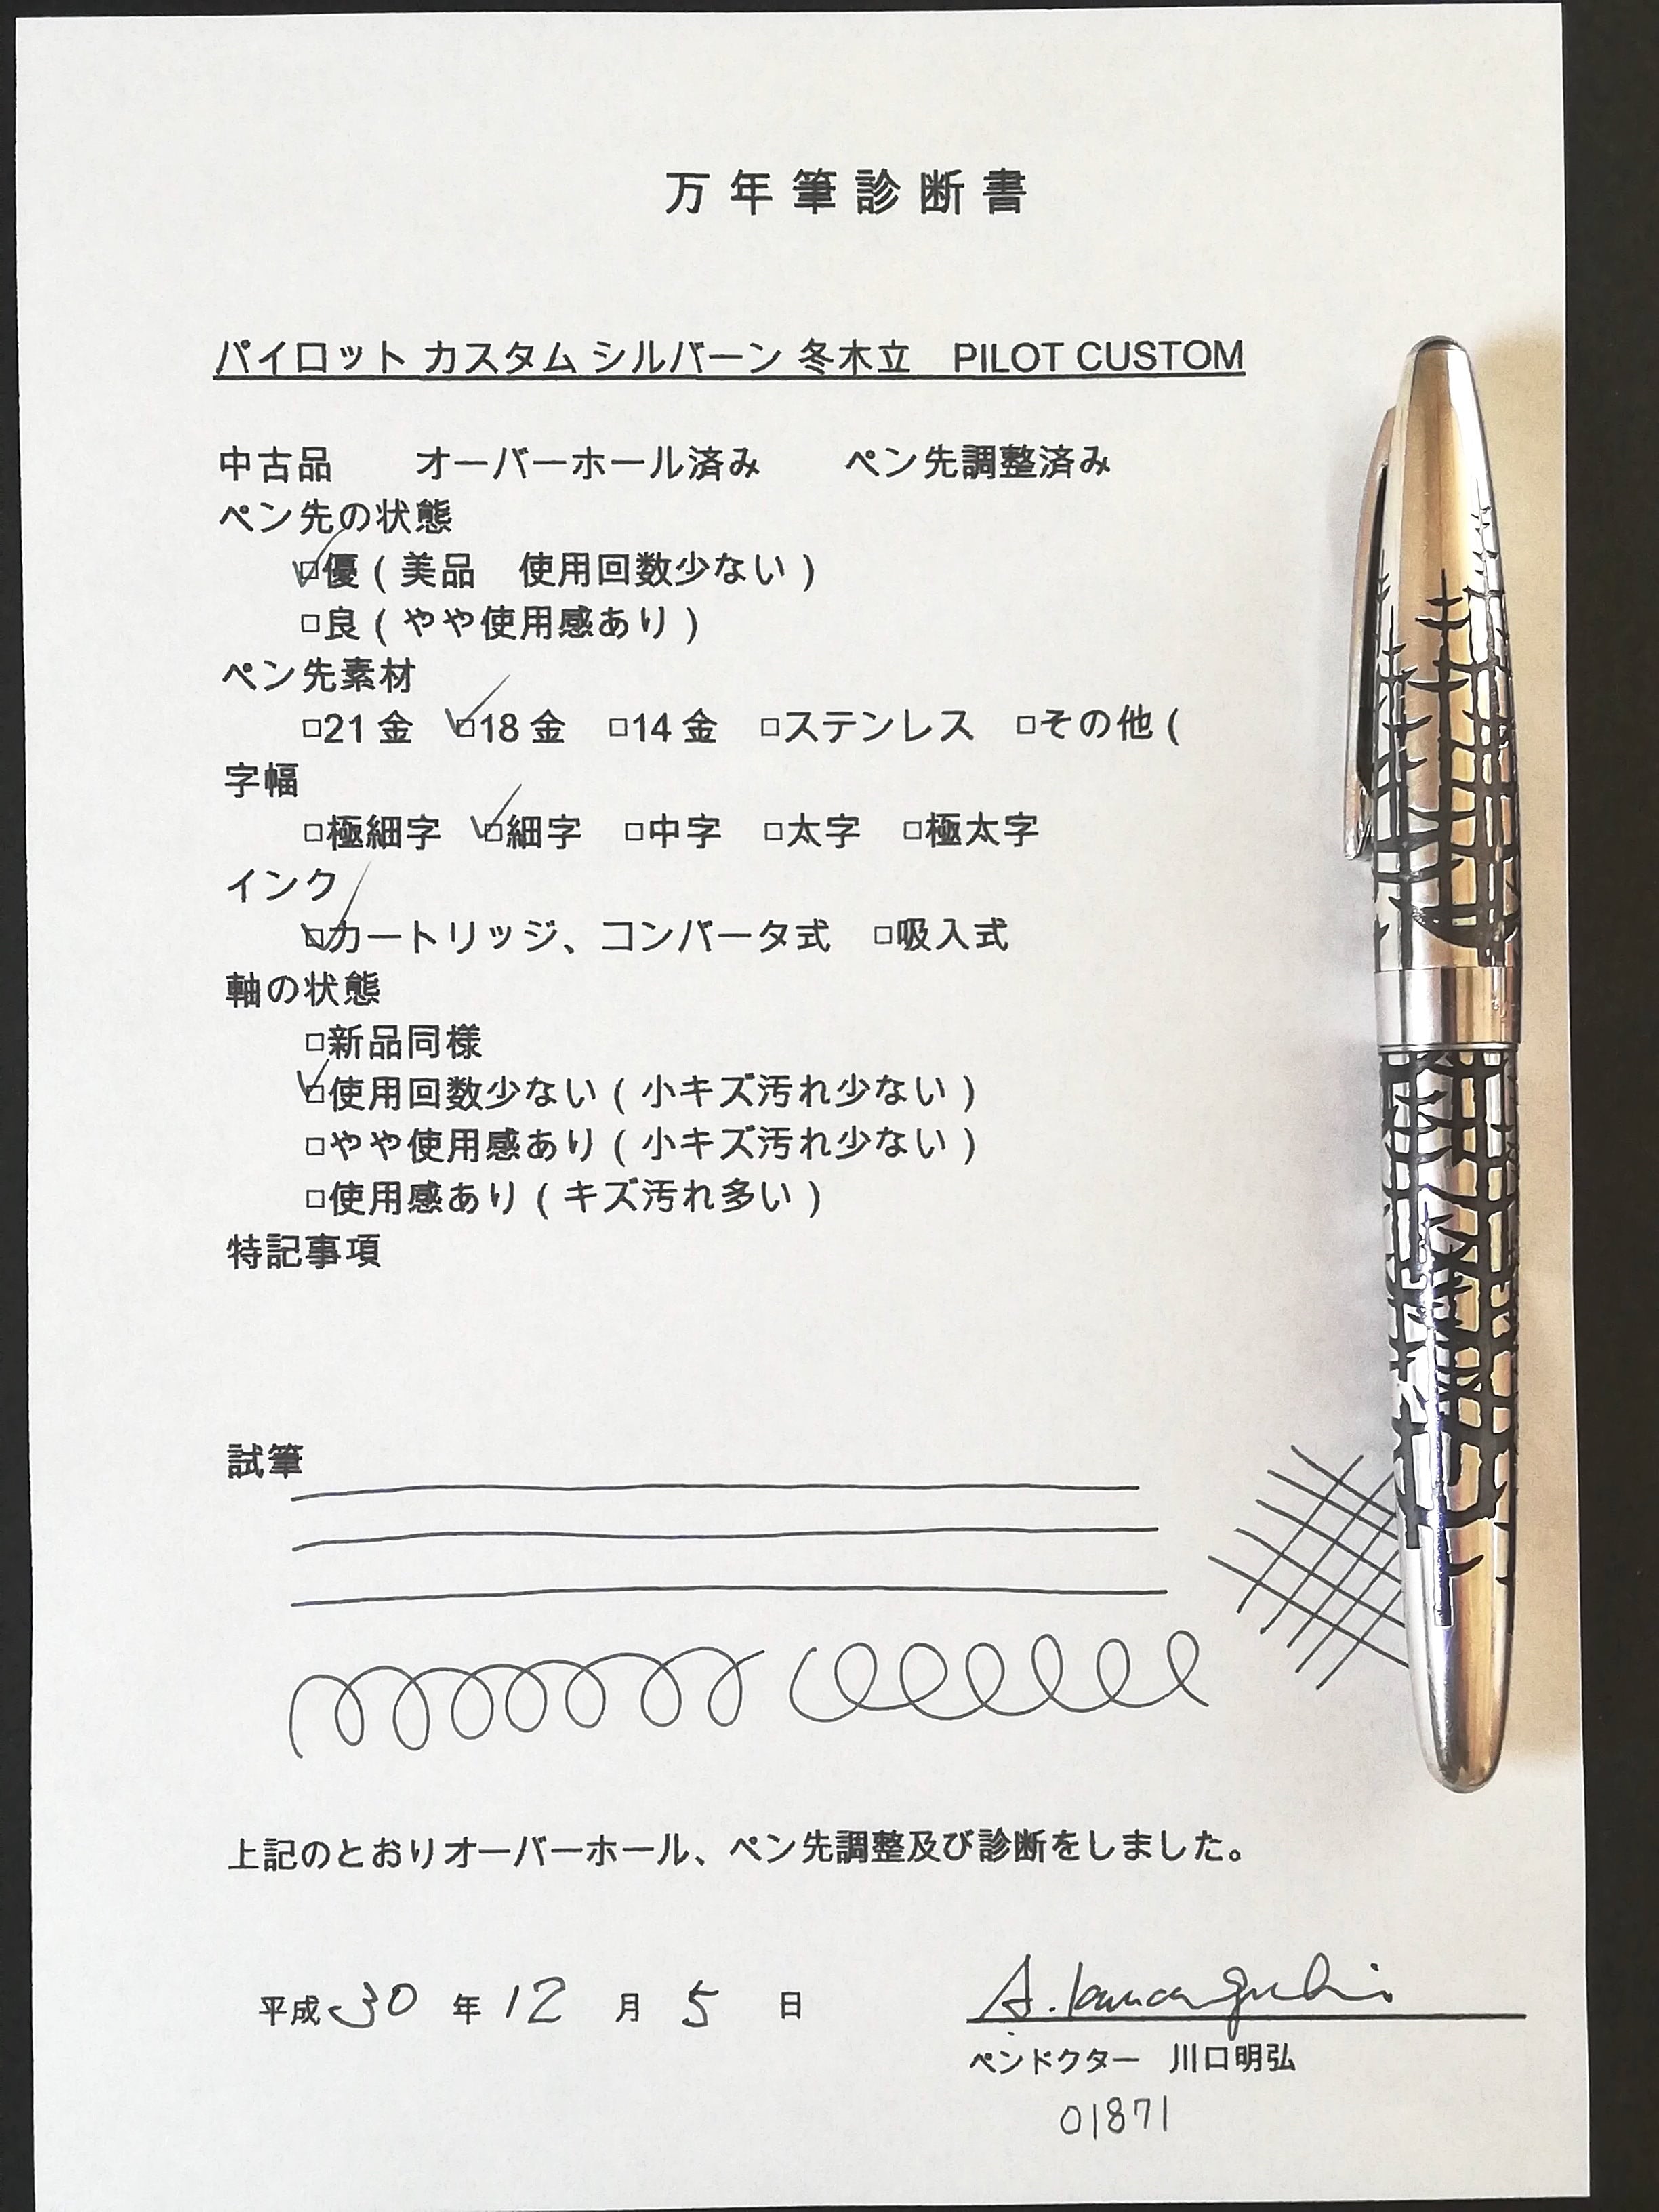 万年筆診断書
パイロット カスタム シルバーン 冬木立　PILOT CUSTOM
中古品　　オーバーホール済み　　ペン先調整済み
ペン先の状態
☑優（美品　使用回数少ない）
□良（やや使用感あり）
ペン先素材
□21金　☑18金　□14金　□ステンレス　□その他（
字幅
□極細字　☑細字　□中字　□太字　□極太字
インク
☑カートリッジ、コンバータ式　□吸入式
軸の状態
□新品同様
☑使用回数少ない（小キズ汚れ少ない）
□やや使用感あり（小キズ汚れ少ない）
□使用感あり（キズ汚れ多い）
特記事項
試筆
上記のとおりオーバーホール、ペン先調整及び診断をしました。
平成30年12月5日
A. Kawaguchi
ペンドクター　川口明弘
01871